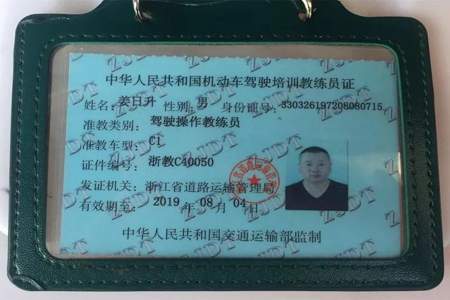 中华人民共和国机动车驾驶培训教练员证
姓名: 姜日升 性别: 男 身份证号: 330326197208080715
准教类别: 驾驶操作教练员
准教车型: C1
证件编号: 浙教C40050
发证机关: 浙江省道路运输管理局
有效期至: 2019 年 08 月 04 日
中华人民共和国交通运输部监制